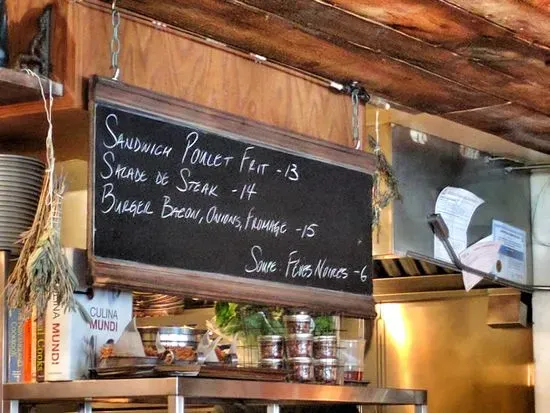 SANDWICH POULET FRIT -13
SALADE DE STEAK -14
BURGER BACON, ONIONS, FROMAGE -15
SOUPE: FÈVES NOIRES -6
CULINA
MUNDI
MUNDI
Cooks